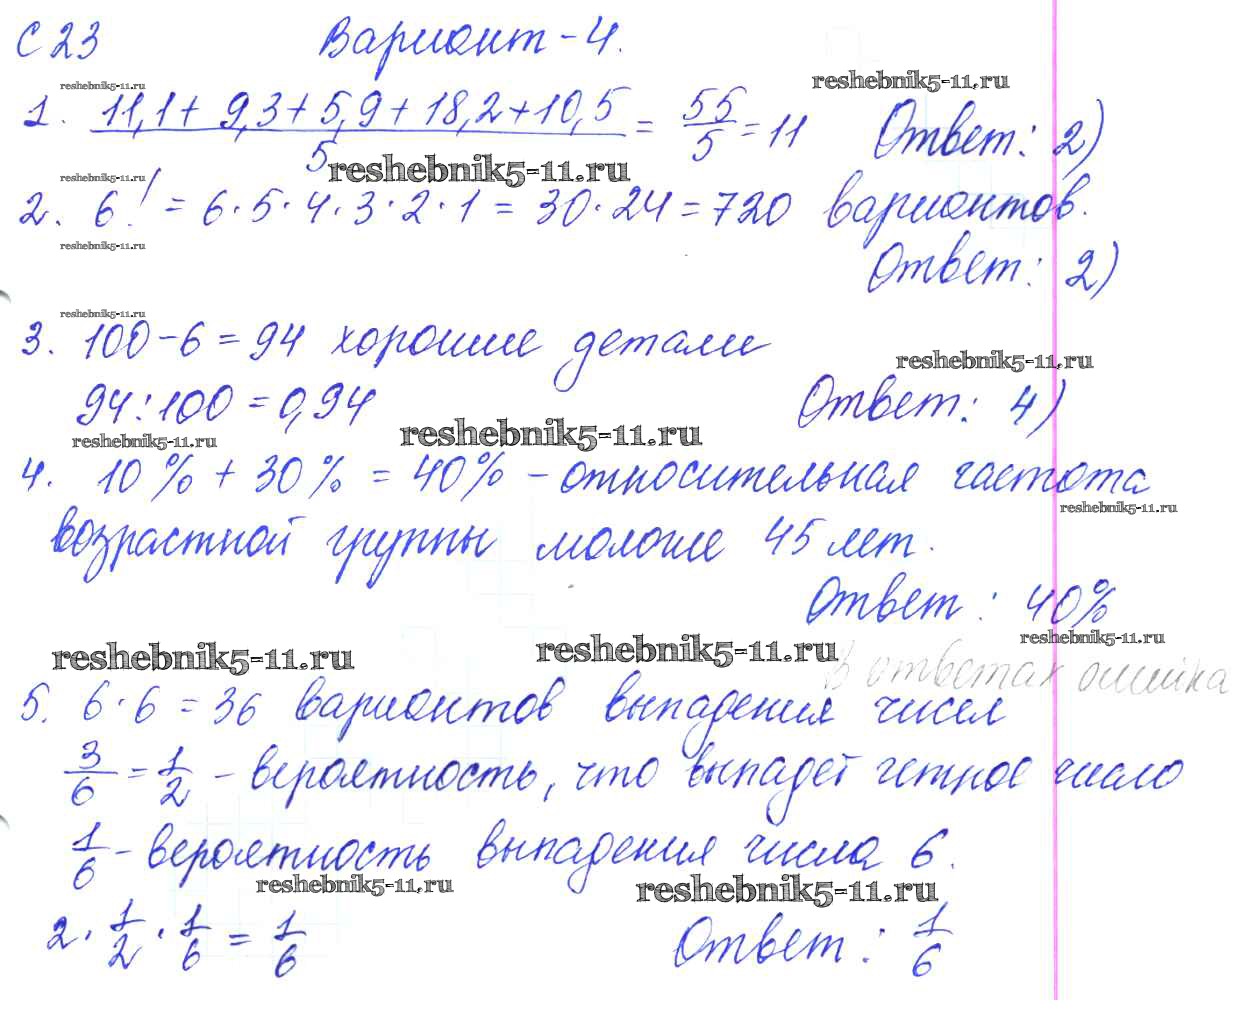 С 23 Вариант - 4.
reshebnik5-11.ru reshebnik5-11.ru
1. (11,1 + 9,3 + 5,9 + 18,2 + 10,5)/5 = 55/5 = 11 Ответ: 2)
reshebnik5-11.ru
reshebnik5-11.ru
2. 6! = 6·5·4·3·2·1 = 30·24 = 720 вариантов.
reshebnik5-11.ru
Ответ: 2)
reshebnik5-11.ru
3. 100 - 6 = 94 хорошие детали
reshebnik5-11.ru
94 : 100 = 0,94 Ответ: 4)
reshebnik5-11.ru reshebnik5-11.ru
4. 10% + 30% = 40% - относительная частота
reshebnik5-11.ru
возрастной группы моложе 45 лет.
Ответ: 40%
reshebnik5-11.ru
reshebnik5-11.ru reshebnik5-11.ru
В ответах ошибка
5. 6·6 = 36 вариантов выпадения чисел
3/6 = 1/2 - вероятность, что выпадет четное число
1/6 - вероятность выпадения числа 6.
reshebnik5-11.ru reshebnik5-11.ru
2 · 1/2 · 1/6 = 1/6 Ответ: 1/6